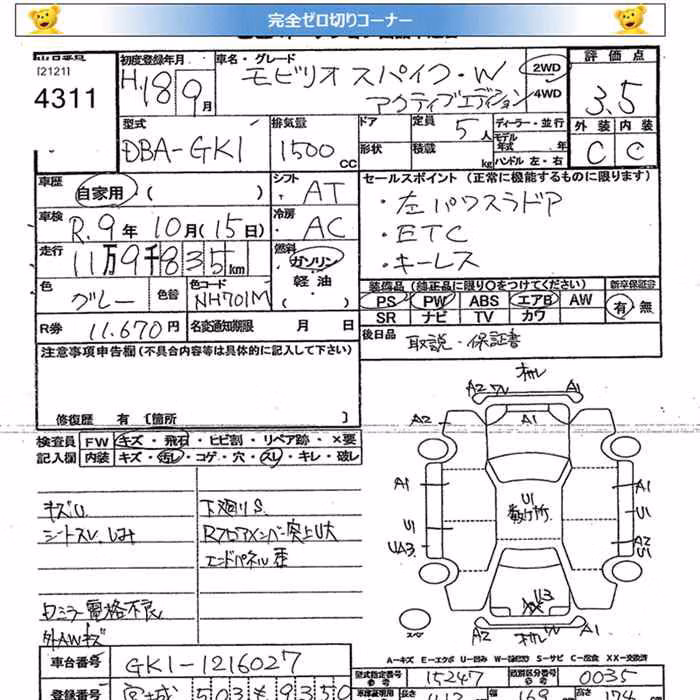 完全ゼロ切りコーナー
[2121]
4311
初度登録年月
H.18 9月
車名・グレード
モビリオスパイク・W
アクティブエディション
2WD
4WD
評価点
3.5
外装 内装
C C
型式
DBA-GK1
排気量
1500 CC
ドア
形状
定員 5人
積載 kg
ディーラー・並行
モデル年式 年
ハンドル 左・右
車歴
自家用 ( )
シフト
AT
セールスポイント (正常に機能するものに限ります)
・左パワスラドア
・ETC
・キーレス
車検
R.9年10月(15日)
冷房
AC
走行
11万9千835km
燃料
ガソリン
軽油
色
グレー
色替
色コード
NH701M
装備品 (純正品に限り〇をつけてください)
PS PW ABS エアB AW
SR ナビ TV カワ
新車保証書
有・無
R券 11,670円
名変通知期限 月 日
後日品 取説・保証書
注意事項申告欄 (不具合内容等は具体的に記入して下さい)
修復歴 有 [箇所 ]
検査員 FW キズ・飛石・ヒビ割・リペア跡・×要
記入欄 内装 キズ・汚レ・コゲ・穴・スレ・キレ・破レ
キズU
シートスレ、しみ
ロミラー電格不良
外AWキズ
下廻りS
Rフロアメンバー突上U大
エンドパネル歪
オカレ
A2 ワレ A1
A2 A1
A1 A1
U1 U1
UA3 A2
U1
U1
数ケ所
U3
A2 A1
スペア
A-キズ E-エクボ U-凹み W-補修跡 S-サビ C-腐食 XX-交換済
車台番号 GK1-1216027
型式指定番号 15247
類別区分番号 0035
登録番号 宮城 503 そ 9350
長さ
幅
高さ